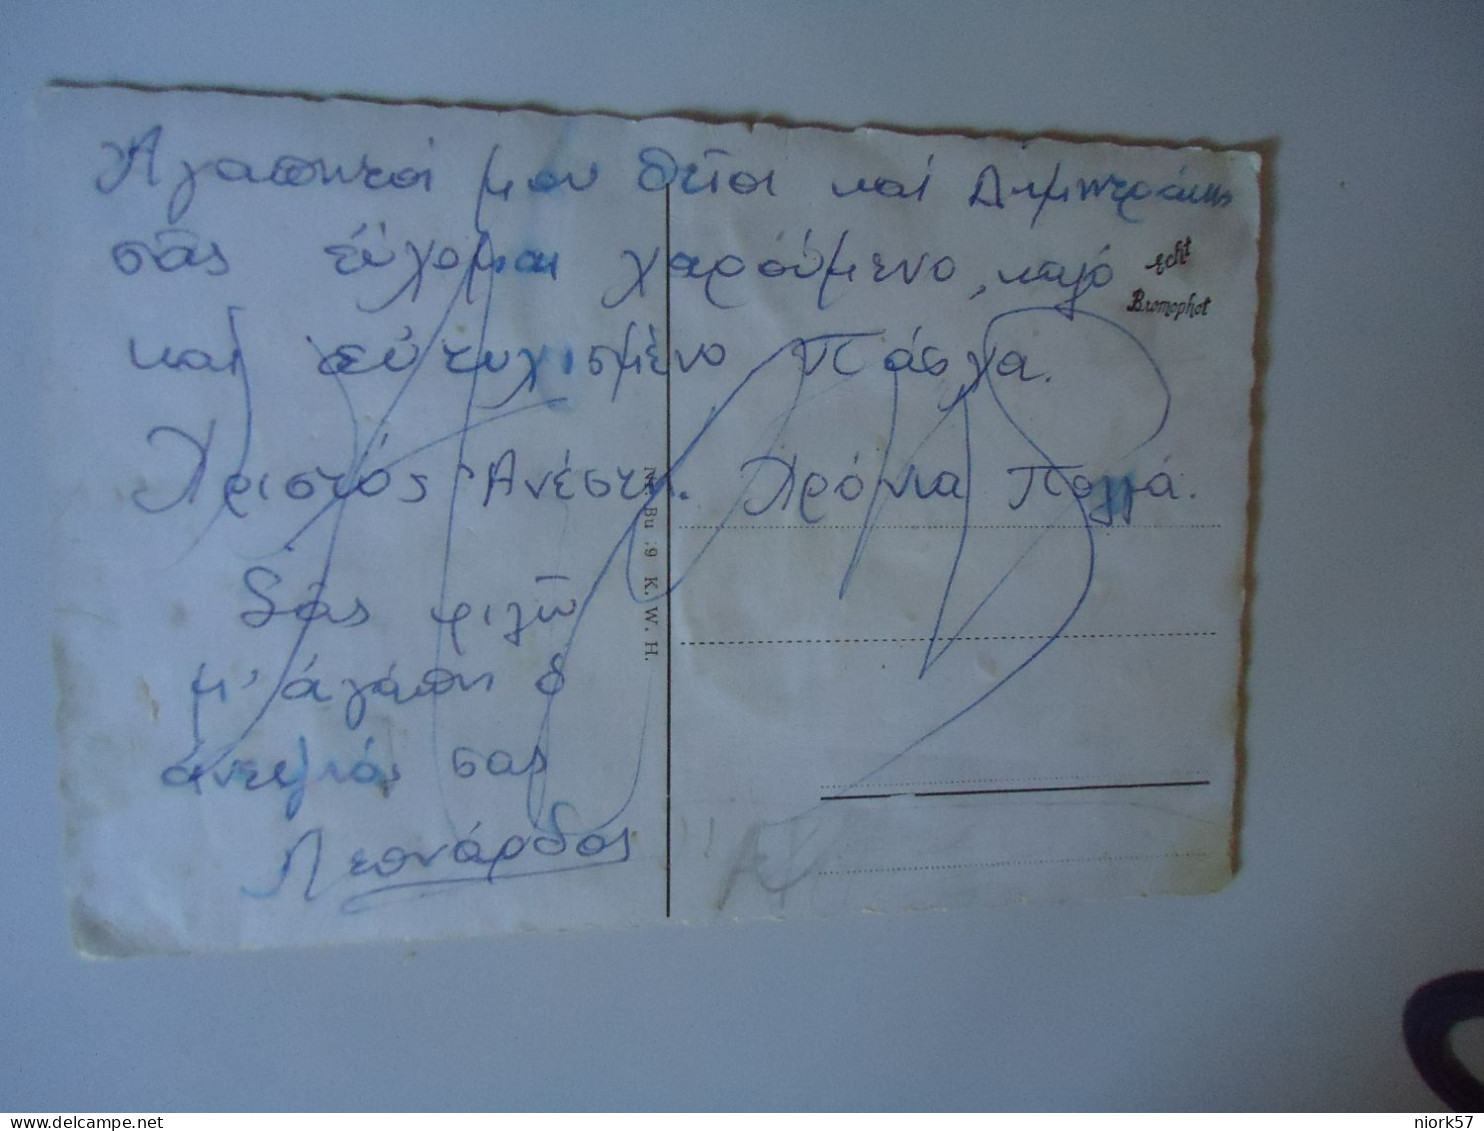 Ἀγαπητοί μου θεῖοι καί Δημητράκης
σᾶς εὔχομαι χαρούμενο, καλό
καί εὐτυχισμένο Πάσχα.
Χριστός Ἀνέστη. Χρόνια Πολλά.
Σᾶς φιλῶ
μ' ἀγάπη ὁ
ἀνεψιός σας
Λεονάρδος
echt
Bromophot
K. W. H.
niork57